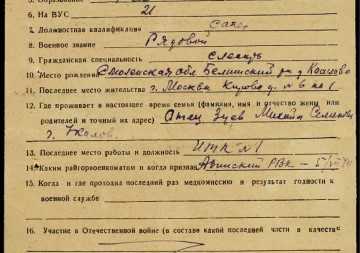 6. На ВУС 21
7. Должностная квалификация сапер
8. Военное звание Рядовой
9. Гражданская специальность слесарь
10. Место рождения Смоленская обл Бельинский рн д
11. Последнее место жительства г. Москва Кирова д. № 6 кв 1
12. Где проживает в настоящее время семья (фамилия, имя и отчество жены или
родителей и точный их адрес) Отец Зуев Михаил Семенов
г.
13. Последнее место работы и должность ИТК №1
14. Каким райгорвоенкоматом и когда призван РВК — 5/VII
15. Когда и где проходил последний раз медкомиссию и результат годности к
военной службе
16. Участие в Отечественной войне (в составе какой последней части в качестве